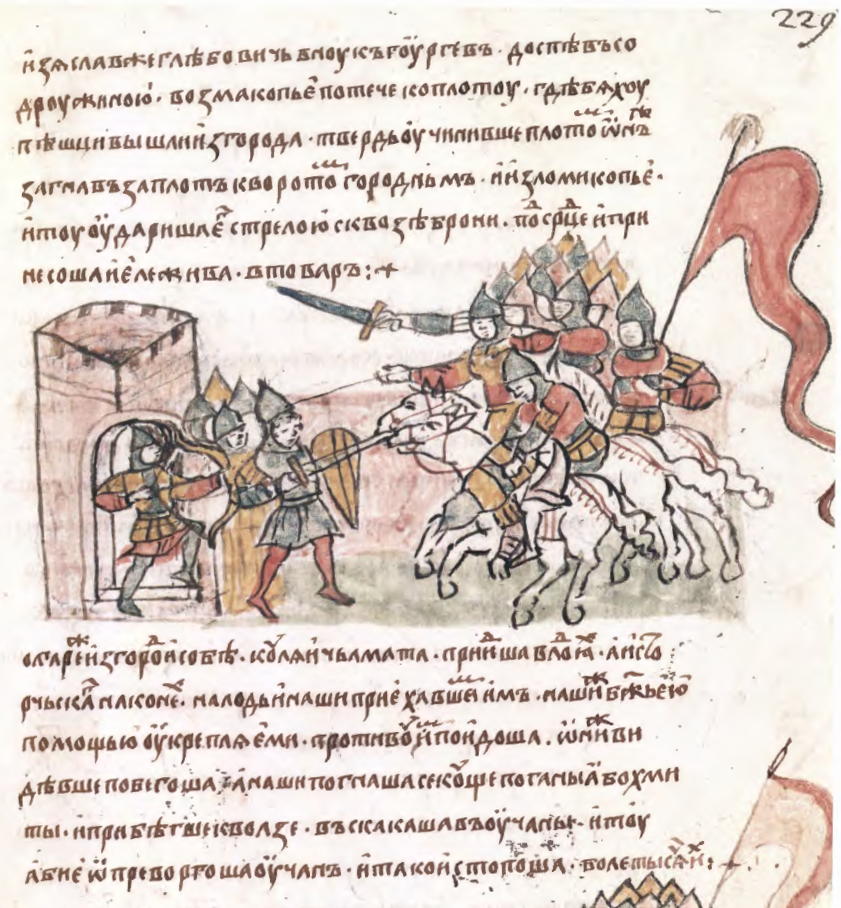 229
изѧславжеглѣбовичьвноукъгоургевъ · доспѣвъсо
дроужиною · возмакопьепотечекоплотоу · гдѣбѧхоу
пѣшцивышлиизгорода · твердьоучинившеплото ѡнъ
загнавъзаплотъквората городнымъ · иизломикопье ·
итоуоударишае стрелоюсквозѣброни · по срце ипри
несошаиележива · втоваръ
олгареизгородисобѣ · кулѧичьалмата · приидоша
рчьска наконе · налодьинашиприехавшеимъ · нашибжьею
помощьюоукреплѧеми · противоупоидоша · ѡниви
дѣвшепобегоша · анашипогнашасекоущепоганыꙗбохми
ты · иприбѣгшеиквользе · въскакашавъоучаны · итоу
абие ѡпревергошаоучанъ · итакоистопоша · болетысѧчи